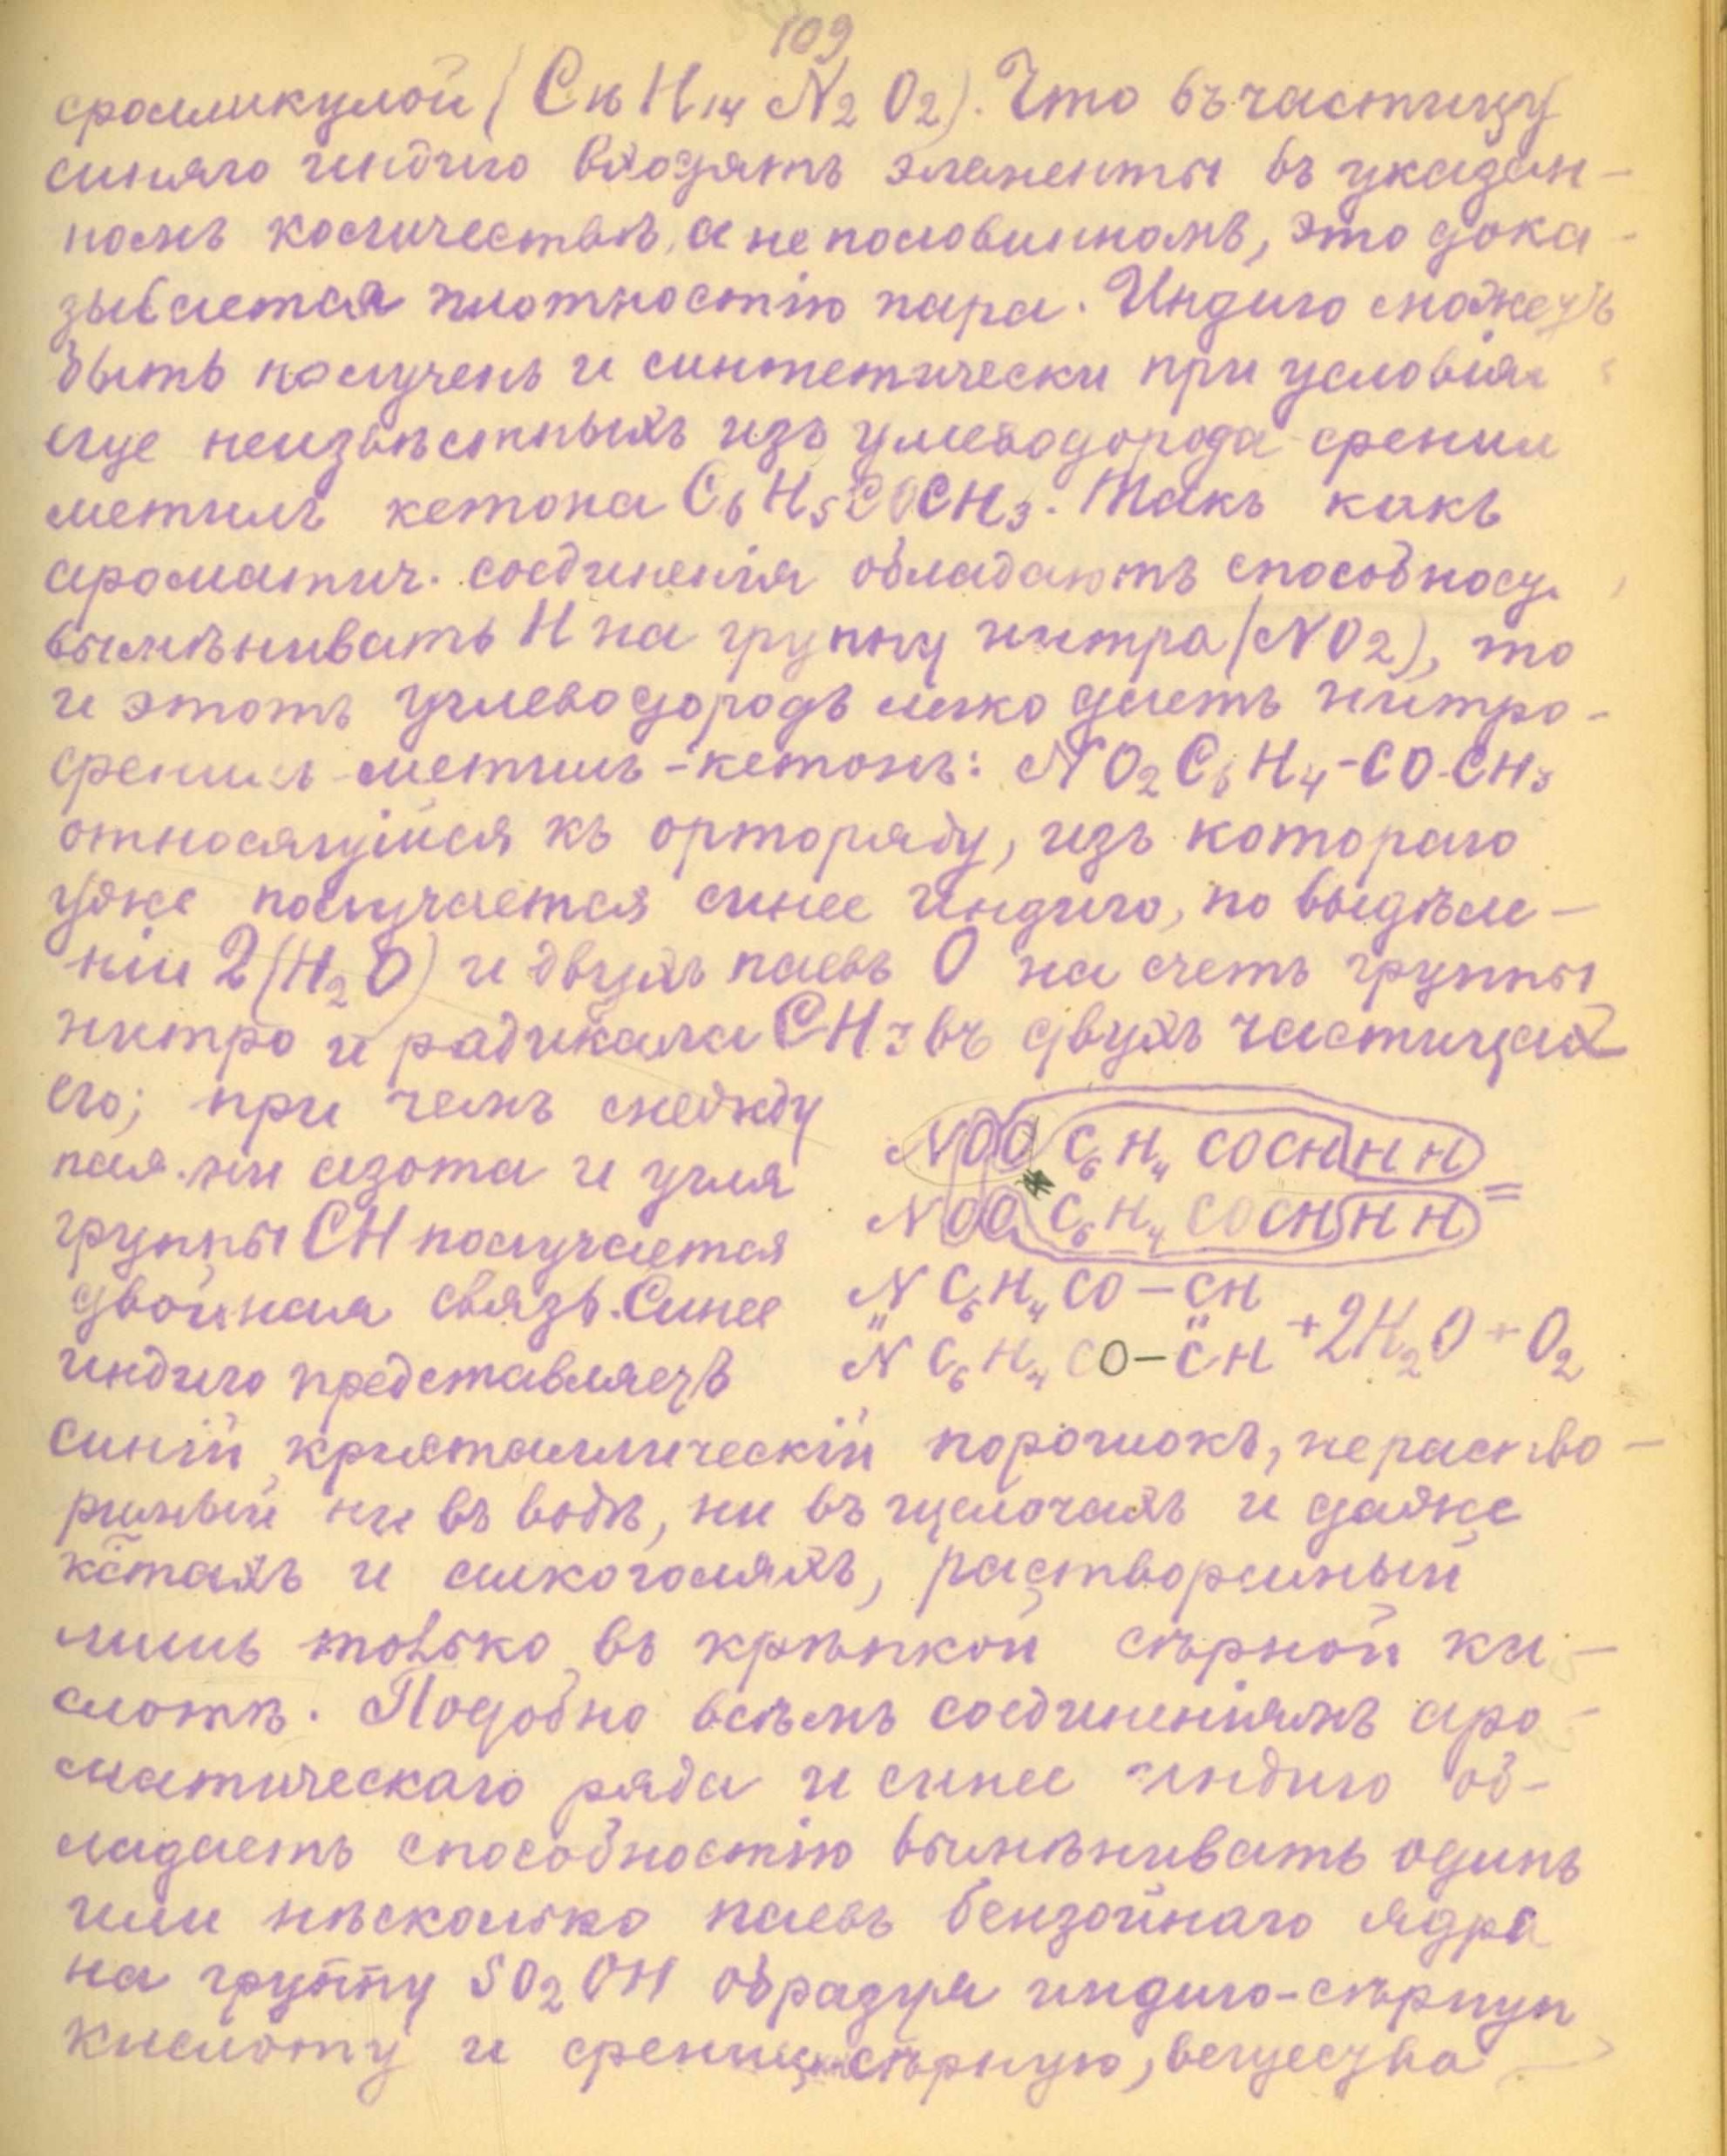 109
формикулой (C16 H14 N2 O2). Что въ частицу
синяго индиго входятъ элементы въ указан-
номъ количествѣ, а не половинномъ, это дока-
зывается плотностію пара. Индиго можетъ
быть полученъ и синтетически при условіях
еще неизвѣстныхъ изъ углеводорода фенил
метилъ кетона C6 H5 COCH3. Такъ какъ
ароматич. соединенія обладаютъ способнос.
вымѣнивать H на группу нитра (NO2), то
и этотъ углеводородъ легко даетъ нитро-
фенилъ-метилъ-кетонъ: NO2 C6 H4-CO-CH3
относящійся къ орторяду, изъ котораго
уже получается синее индиго, по выдѣле-
ніи 2(H2O) и двухъ паевъ O на счетъ группы
нитро и радикала CH3 въ двухъ частицах
его; при чемъ между
паями азота и угля
группы CH получается
двойная связь. Синее
индиго представляетъ
NOO C6 H4 COCHHH
NOO C6 H4 COCHHH =
N C6 H4 CO-CH
" "
N C6 H4 CO-CH +2H2O+O2
синій кристаллическій порошокъ, нераство-
римый ни въ водѣ, ни въ щелочахъ и даже
кстахъ и алкоголяхъ, растворимый
лишь только въ крѣпкой сѣрной ки-
слотѣ. Подобно всѣмъ соединеніямъ аро-
матическаго ряда и синее индиго об-
ладаетъ способностію вымѣнивать одинъ
или нѣсколько паевъ бензойнаго ядра
на группу SO2OH образуя индиго-сѣрную
кислоту и сѣрную, вещества